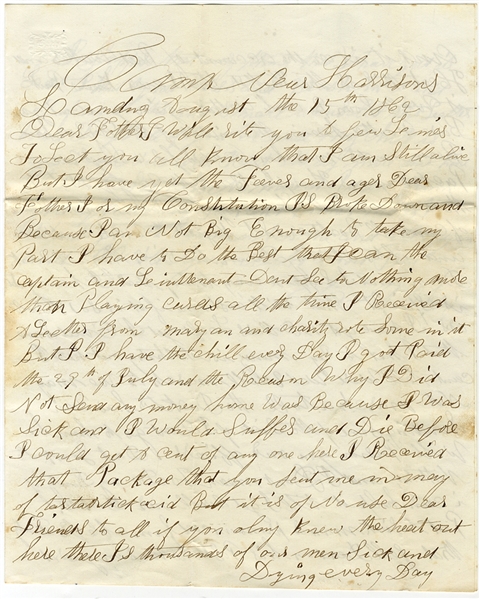 Camp Near Harrisons
Landing August the 15th 1862
Dear Father I Will rite you a few Lines
To Let you all Know that I am Still alive
But I have yet the Feever and ager Dear
Father For my Constitution Is Broke Down and
Because I am Not Big Enough to take my
Part I have to Do the Best that I can the
captain and Leiuttenant Dont See to Nothing more
than Playing cards all the time I Received
A Letter from maryan and charity rote Some in it
But I I have the chill every Day I got Paid
the 29th of July and the Reason Why I Did
Not Send any money home Was Because I Was
Sick and I Would Suffer and Die Before
I could get a cent of any one here I Received
that Package that you Sent me in may
of tartarstick acid But it is of No use Dear
Friends to all if you olny knew the heat out
here there Is thousands of our men Sick and
Dying every Day